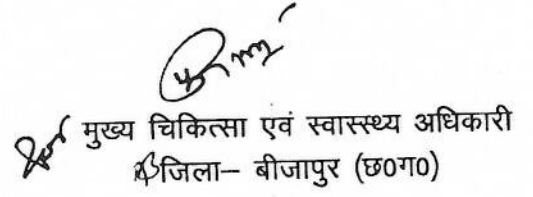 मुख्य चिकित्सा एवं स्वास्स्थ्य अधिकारी
जिला– बीजापुर (छ0ग0)